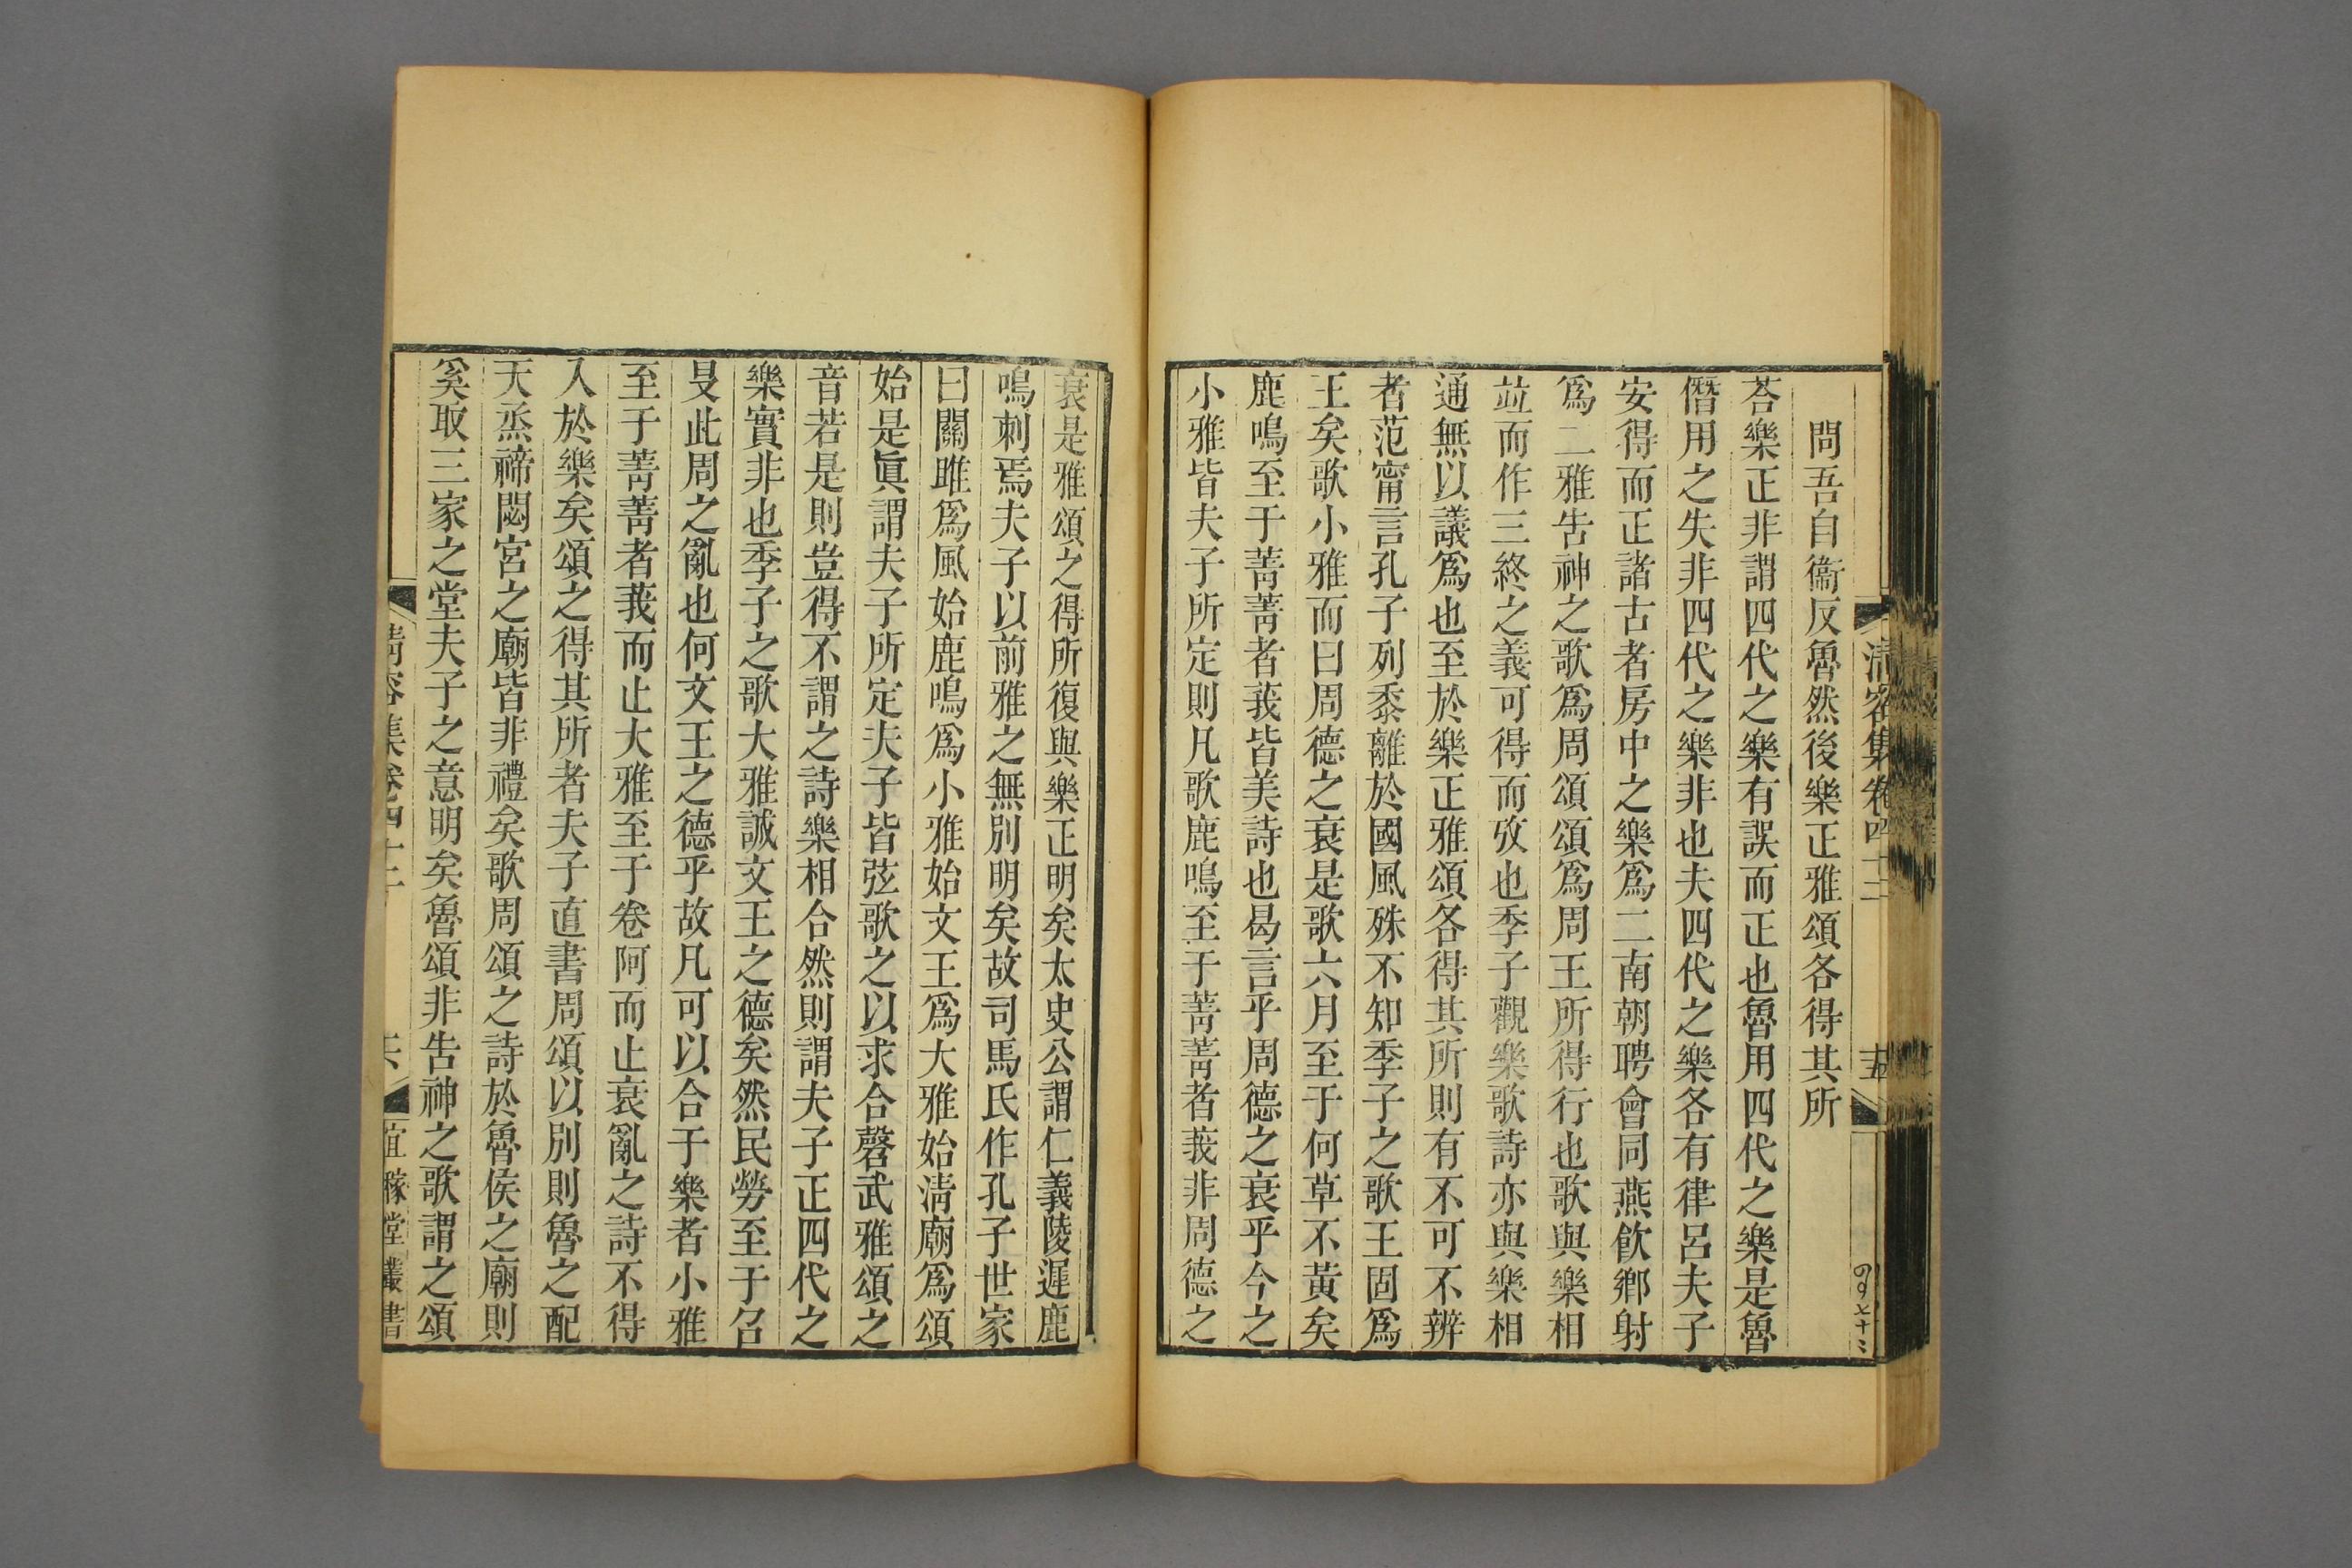 清容集卷四十二
十五
問吾自衞反魯然後樂正雅頌各得其所
荅樂正非謂四代之樂有誤而正也魯用四代之樂是魯
僭用之失非四代之樂非也夫四代之樂各有律呂夫子
安得而正諸古者房中之樂爲二南朝聘會同燕飮鄉射
爲二雅吿神之歌爲周頌頌爲周王所得行也歌與樂相
竝而作三終之義可得而攷也季子觀樂歌詩亦與樂相
通無以議爲也至於樂正雅頌各得其所則有不可不辨
者范甯言孔子列黍離於國風殊不知季子之歌王固爲
王矣歌小雅而曰周德之衰是歌六月至于何草不黃矣
鹿鳴至于菁菁者莪皆美詩也曷言乎周德之衰乎今之
小雅皆夫子所定則凡歌鹿鳴至于菁菁者莪非周德之
衰是雅頌之得所復與樂正明矣太史公謂仁義陵遲鹿
鳴刺焉夫子以前雅之無別明矣故司馬氏作孔子世家
曰關雎爲風始鹿鳴爲小雅始文王爲大雅始淸廟爲頌
始是眞謂夫子所定夫子皆弦歌之以求合磬武雅頌之
音若是則豈得不謂之詩樂相合然則謂夫子正四代之
樂實非也季子之歌大雅誠文王之德矣然民勞至于召
旻此周之亂也何文王之德乎故凡可以合于樂者小雅
至于菁菁者莪而止大雅至于卷阿而止衰亂之詩不得
入於樂矣頌之得其所者夫子直書周頌以別則魯之配
天烝禘閟宮之廟皆非禮矣歌周頌之詩於魯侯之廟則
奚取三家之堂夫子之意明矣魯頌非吿神之歌謂之頌
清容集卷四十二
十六
宜稼堂叢書